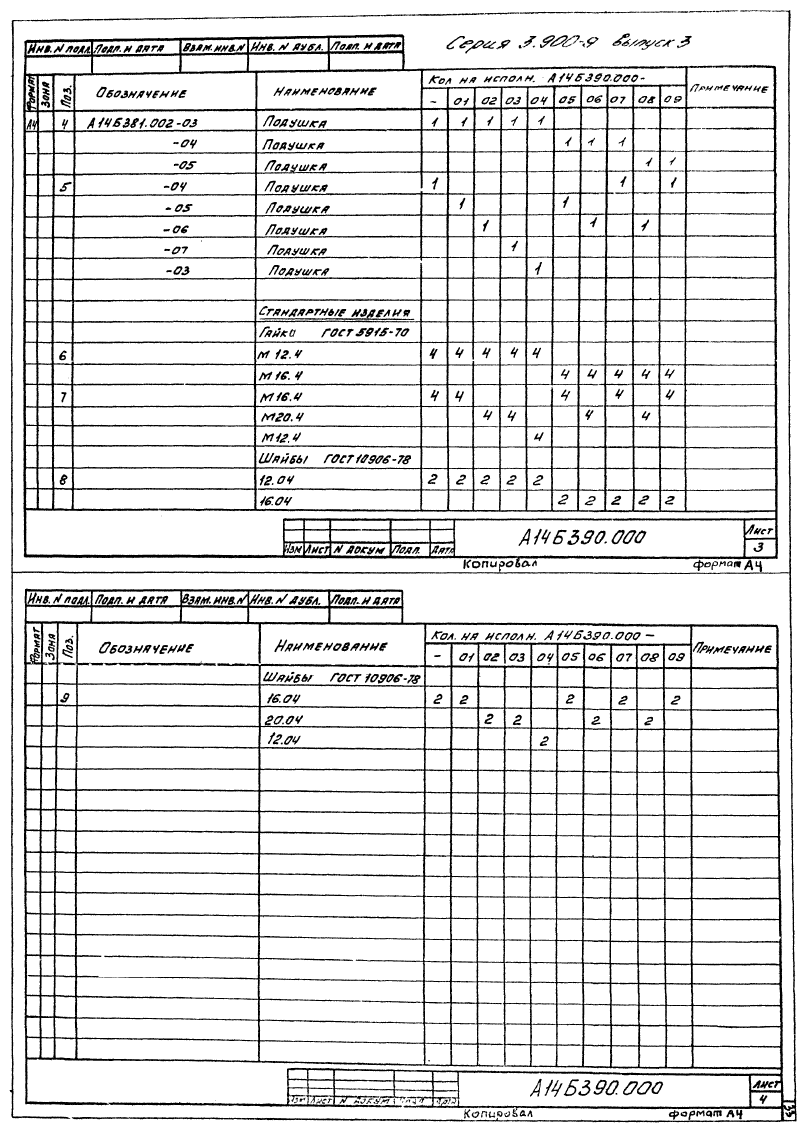 Серия 3.900-9 Выпуск 3
Инв. N подл. Подп. и дата Взам. инв. N Инв. N дубл. Подп. и дата
Формат Зона Поз. Обозначение Наименование Кол на исполн. А14Б390.000- Примечание
- 01 02 03 04 05 06 07 08 09
А4 4 А14Б381.002-03 Подушка 1 1 1 1 1
-04 Подушка 1 1 1
-05 Подушка 1 1
5 -04 Подушка 1 1 1
-05 Подушка 1 1
-06 Подушка 1 1 1
-07 Подушка 1
-03 Подушка 1
Стандартные изделия
Гайки ГОСТ 5915-70
6 М 12.4 4 4 4 4 4
М 16.4 4 4 4 4 4
7 М 16.4 4 4 4 4 4
М20.4 4 4 4 4
М12.4 4
Шайбы ГОСТ 10906-78
8 12.04 2 2 2 2 2
16.04 2 2 2 2 2
Изм Лист N докум Подп. Дата А14Б390.000 Лист 3
Копировал формат А4
Инв. N подл. Подп. и дата Взам. инв. N Инв. N дубл. Подп. и дата
Формат Зона Поз. Обозначение Наименование Кол. на исполн. А14Б390.000 - Примечание
- 01 02 03 04 05 06 07 08 09
Шайбы ГОСТ 10906-78
9 16.04 2 2 2 2 2
20.04 2 2 2 2
12.04 2
Изм Лист N докум Подп Дата А14Б390.000 Лист 4
Копировал формат А4